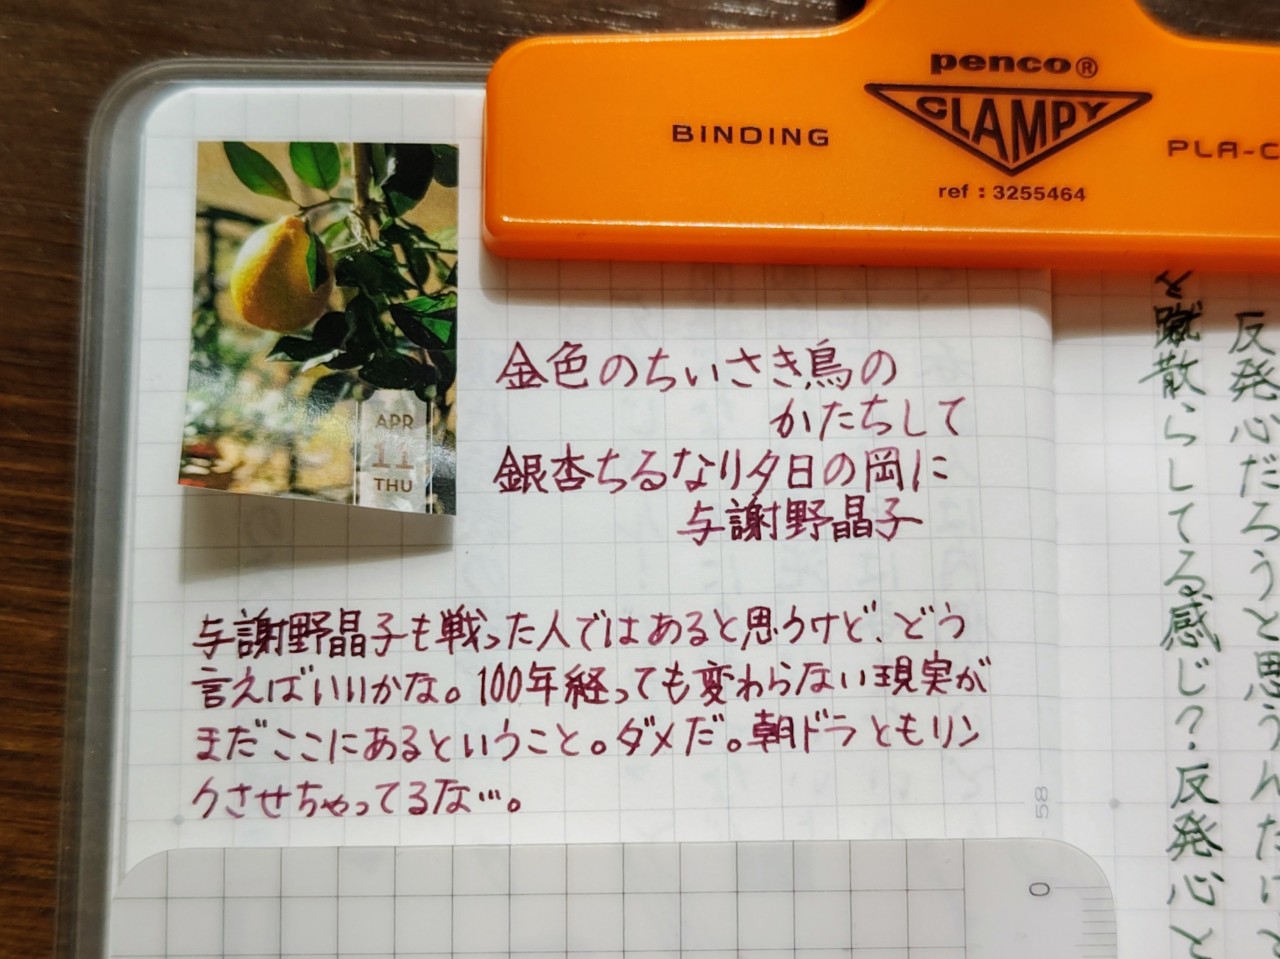 penco®
CLAMPY
BINDING
PLA-C
ref : 3255464
APR
11
THU
金色のちいさき鳥の
かたちして
銀杏ちるなり夕日の岡に
与謝野晶子
与謝野晶子も戦った人ではあると思うけど、どう
言えばいいかな。100年経っても変わらない現実が
まだここにあるということ。ダメだ。朝ドラともリン
クさせちゃってるな…。
58
0
反発心だろうと思うんだけど
蹴散らしてる感じ？反発心と